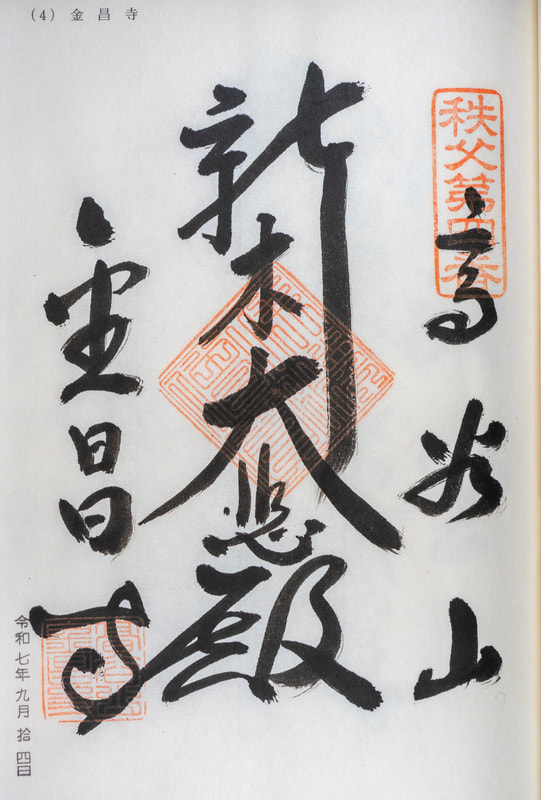 (4) 金昌寺
秩父第四番
高谷山
新木大悲殿
金昌寺
令和七年九月拾四日